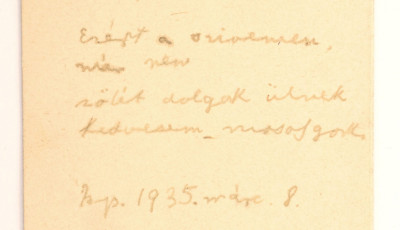 Ezért a szivemen,
már nem
sötét dolgok ülnek
kedvesem_mosolygok.
Bp. 1935. márc. 8.